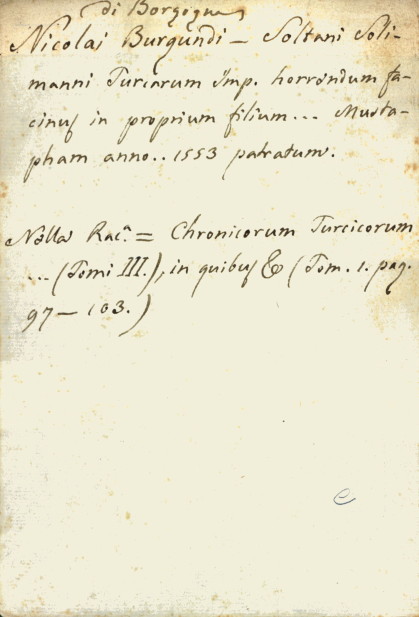 di Borgogna
Nicolai Burgundi — Soltani Soli-
manni Turcarum Imp. horrendum fa-
cinus in proprium filium... Musta-
pham anno.. 1553 patratum.
Nella Racᵃ. = Chronicorum Turcicorum
... (Tomi III.), in quibus & (Tom. 1. pag.
97 — 103.)
e